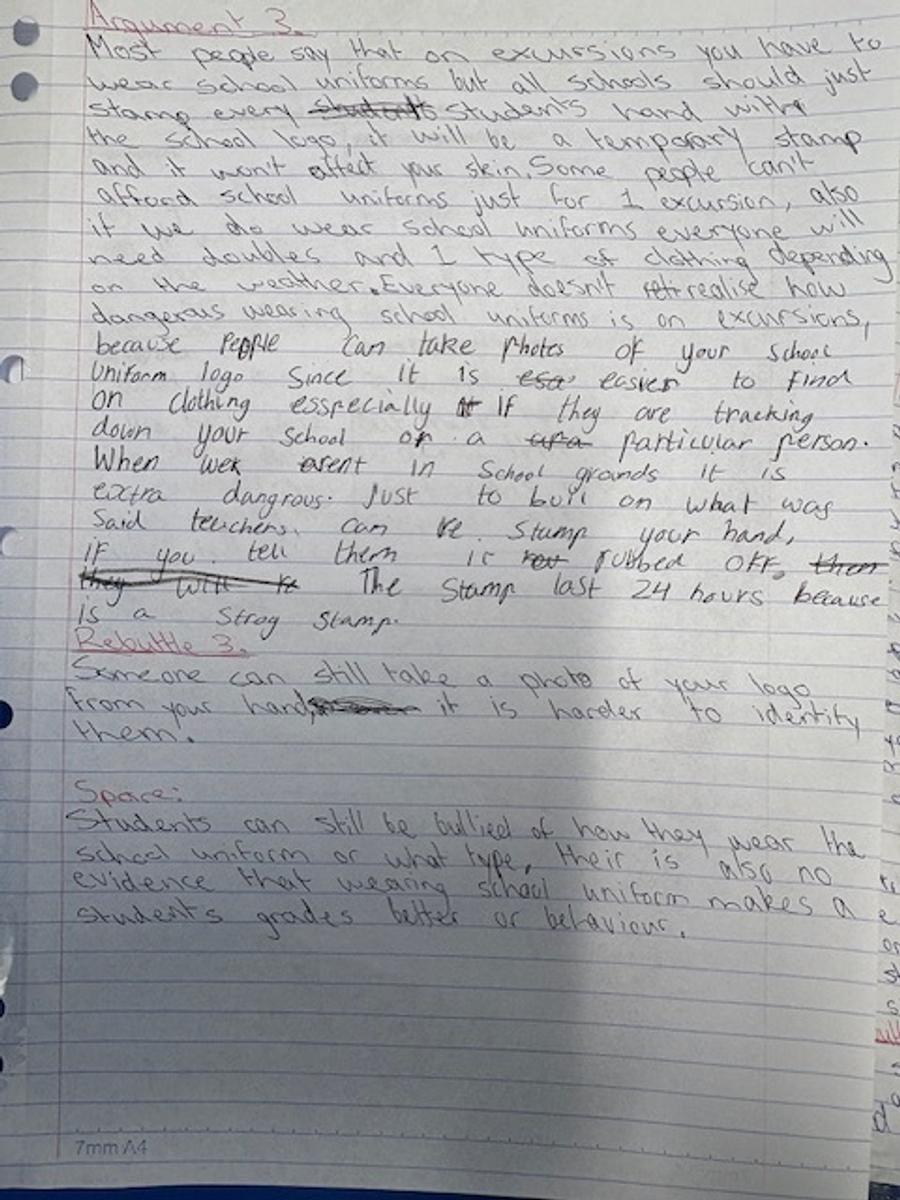 Argument 3.
Most people say that on excursions you have to
wear school uniforms but all schools should just
stamp every students students hand with
the school logo, it will be a temporary stamp
and it won't affect your skin. Some people can't
afford school uniforms just for 1 excursion, also
if we do wear school uniforms everyone will
need doubles and 1 type of clothing depending
on the weather. Everyone doesn't realise how
dangerous wearing school uniforms is on excursions,
because people can take photos of your school
Uniform logo since it is easier to find
on clothing esspecially if they are tracking
down your school or a particular person.
When arent in school grounds it is
extra dangrous. Just to buil on what was
Said teachers. can re. stamp your hand,
if you tell them it rubbed off, then
they will re The stamp last 24 hours because
is a Strog stamp.
Rebuttle 3.
Someone can still take a photo of your logo
from your hand, it is harder to identity
them.
Space:
Students can still be bullied of how they wear the
school uniform or what type, their is also no
evidence that wearing school uniform makes a
students grades better or behaviour.
7mm A4